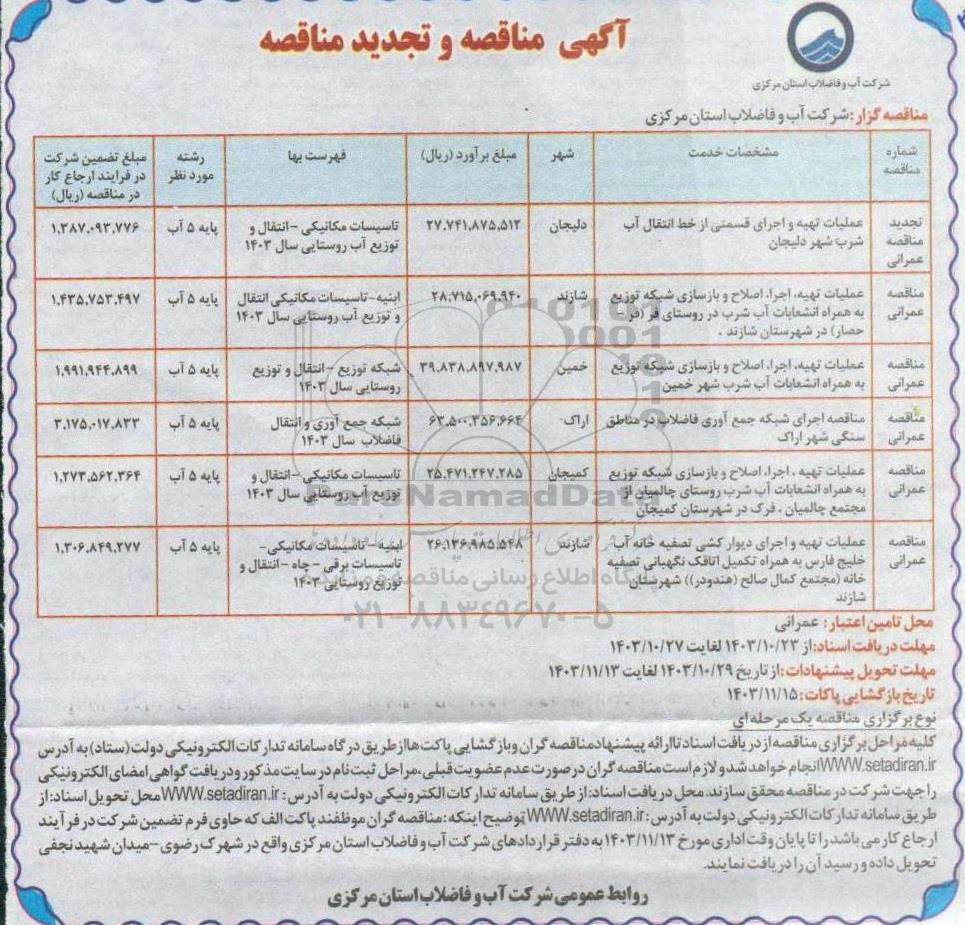 آگهی مناقصه و تجدید مناقصه
شرکت آب و فاضلاب استان مرکزی
مناقصه گزار: شرکت آب و فاضلاب استان مرکزی
شماره مناقصه
مشخصات خدمت
شهر
مبلغ برآورد (ریال)
فهرست بها
رشته مورد نظر
مبلغ تضمین شرکت در فرایند ارجاع کار در مناقصه (ریال)
تجدید مناقصه عمرانی
عملیات تهیه و اجرای قسمتی از خط انتقال آب
شرب شهر دلیجان
دلیجان
۲۷.۷۴۱.۸۷۵.۵۱۲
تاسیسات مکانیکی -انتقال و
توزیع آب روستایی سال ۱۴۰۳
پایه ۵ آب
۱.۳۸۷.۰۹۳.۷۷۶
مناقصه عمرانی
عملیات تهیه، اجرا، اصلاح و بازسازی شبکه توزیع
به همراه انشعابات آب شرب در روستای فر (فر-
حصار) در شهرستان شازند .
شازند
۲۸.۷۱۵.۰۶۹.۹۴۰
ابنیه-تاسیسات مکانیکی انتقال
و توزیع آب روستایی سال ۱۴۰۳
پایه ۵ آب
۱.۴۳۵.۷۵۳.۴۹۷
مناقصه عمرانی
عملیات تهیه، اجرا، اصلاح و بازسازی شبکه توزیع
به همراه انشعابات آب شرب شهر خمین
خمین
۳۹.۸۳۸.۸۹۷.۹۸۷
شبکه توزیع -انتقال و توزیع
روستایی سال ۱۴۰۳
پایه ۵ آب
۱.۹۹۱.۹۴۴.۸۹۹
مناقصه عمرانی
مناقصه اجرای شبکه جمع آوری فاضلاب در مناطق
سنگی شهر اراک
اراک
۶۳.۵۰۰.۳۵۶.۶۶۴
شبکه جمع آوری و انتقال
فاضلاب سال ۱۴۰۳
پایه ۵ آب
۳.۱۷۵.۰۱۷.۸۳۳
مناقصه عمرانی
عملیات تهیه ، اجرا، اصلاح و بازسازی شبکه توزیع
به همراه انشعابات آب شرب روستای چالمیان از
مجتمع چالمیان ، فرک در شهرستان کمیجان
کمیجان
۲۵.۴۷۱.۲۴۷.۲۸۵
تاسیسات مکانیکی -انتقال و
توزیع آب روستایی سال ۱۴۰۳
پایه ۵ آب
۱.۲۷۳.۵۶۲.۳۶۴
مناقصه عمرانی
عملیات تهیه و اجرای دیوار کشی تصفیه خانه آب
خلیج فارس به همراه تکمیل اتاقک نگهبانی تصفیه
خانه (مجتمع کمال صالح (هندودر)) شهرستان
شازند
شازند
۲۶.۱۳۶.۹۸۵.۵۴۸
ابنیه - تاسیسات مکانیکی-
تاسیسات برقی - چاه -انتقال و
توزیع روستایی ۱۴۰۳
پایه ۵ آب
۱.۳۰۶.۸۴۹.۲۷۷
ParsNamadData
پایگاه اطلاع رسانی مناقصه و مزایده
۰۲۱-۸۸۳۴۹۶۷۰-۵
محل تامین اعتبار: عمرانی
مهلت دریافت اسناد: از ۱۴۰۳/۱۰/۲۳ لغایت ۱۴۰۳/۱۰/۲۷
مهلت تحویل پیشنهادات: از تاریخ ۱۴۰۳/۱۰/۲۹ لغایت ۱۴۰۳/۱۱/۱۳
تاریخ بازگشایی پاکات: ۱۴۰۳/۱۱/۱۵
نوع برگزاری مناقصه یک مرحله ای
کلیه مراحل برگزاری مناقصه از دریافت اسناد تا ارائه پیشنهاد مناقصه گران و بازگشایی پاکت ها از طریق درگاه سامانه تدارکات الکترونیکی دولت (ستاد) به آدرس
WWW.setadiran.ir انجام خواهد شد و لازم است مناقصه گران در صورت عدم عضویت قبلی، مراحل ثبت نام در سایت مذکور و دریافت گواهی امضای الکترونیکی
را جهت شرکت در مناقصه محقق سازند. محل دریافت اسناد: از طریق سامانه تدارکات الکترونیکی دولت به آدرس: WWW.setadiran.ir محل تحویل اسناد: از
طریق سامانه تدارکات الکترونیکی دولت به آدرس: WWW.setadiran.ir توضیح اینکه: مناقصه گران موظفند پاکت الف که حاوی فرم تضمین شرکت در فرآیند
ارجاع کار می باشد را تا پایان وقت اداری مورخ ۱۴۰۳/۱۱/۱۳ به دفتر قراردادهای شرکت آب و فاضلاب استان مرکزی واقع در شهرک رضوی-میدان شهید نجفی
تحویل داده و رسید آن را دریافت نمایند.
روابط عمومی شرکت آب و فاضلاب استان مرکزی